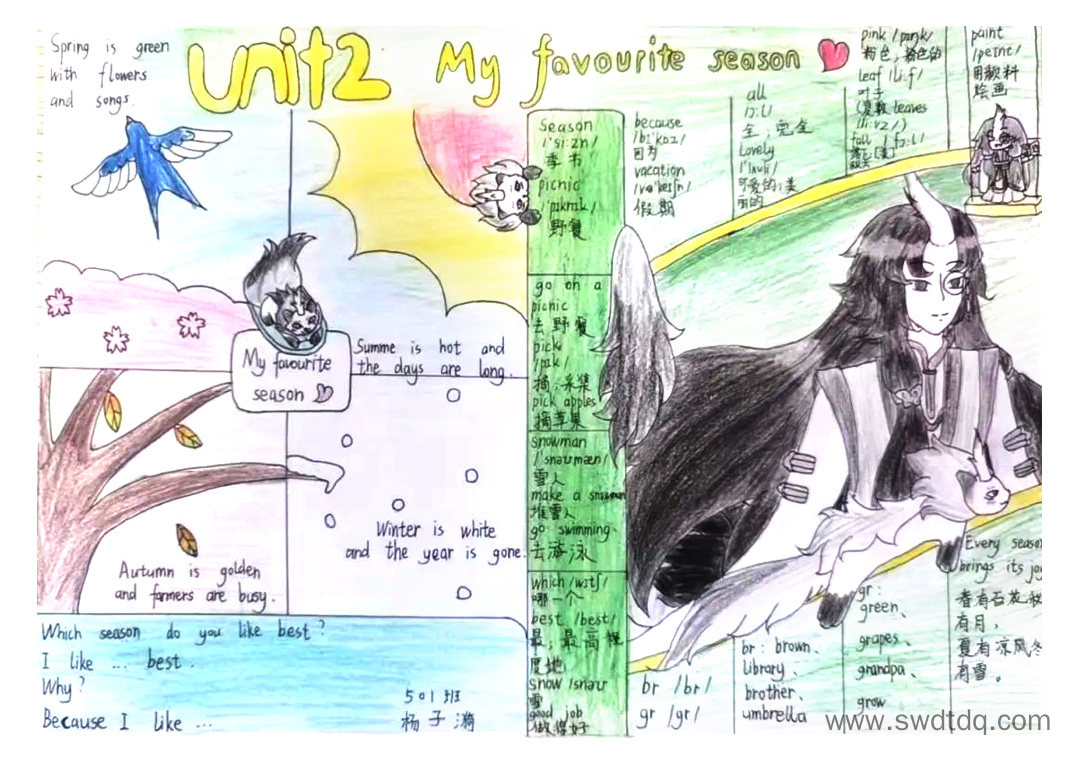 Spring is green
with flowers
and songs.
Unit2 My favourite season
My favourite
season
Summe is hot and
the days are long.
Winter is white
and the year is gone.
Autumn is golden
and farmers are busy.
Which season do you like best?
I like ... best.
Why?
Because I like ...
501班
杨子
season
/'si:zn/
季节
picnic
/'pɪknɪk/
野餐
go on a
picnic
去野餐
pick
/pɪk/
摘;采集
pick apples
摘苹果
snowman
/'snəʊmæn/
雪人
make a snowman
堆雪人
go swimming
去游泳
which /wɪtʃ/
哪一个
best /best/
最;最高程
度地
snow /snəʊ
雪
good job
做得好
because
/bɪ'kɒz/
因为
vacation
/və'keɪʃn/
假期
all
/ɔ:l/
全;完全
lovely
/'lʌvli/
可爱的;美
丽的
pink /pɪŋk/
粉色;粉色的
leaf /li:f/
叶子
(复数 leaves
/li:vz/)
fall /fɔ:l/
paint
/peɪnt/
用颜料
绘画
br /br/
gr /gr/
br: brown、
library、
brother、
umbrella
gr:
green、
grapes、
grandpa、
grow
Every season
brings its joy
春有百花秋
有月,
夏有凉风冬
有雪。
www.swdtdq.com